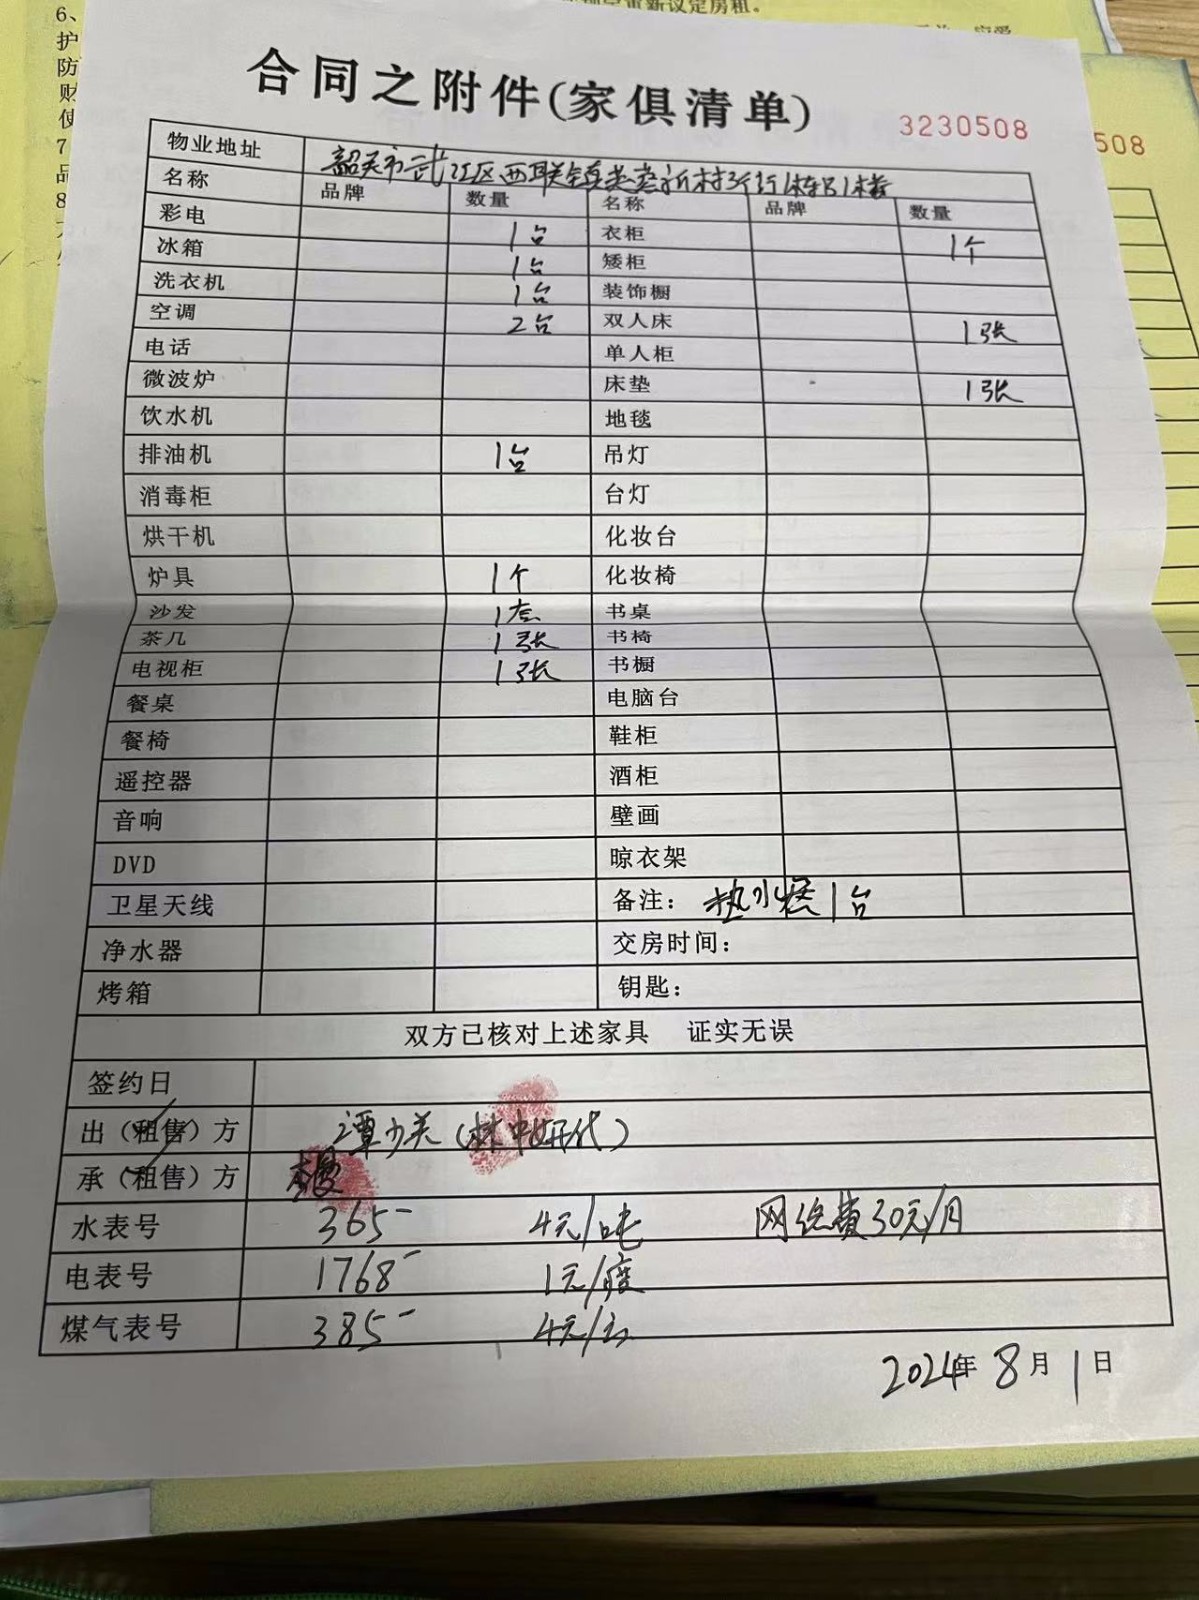 新议定房租。
6、
护
防
财
使
7
品
8
合同之附件(家俱清单)
3230508
508
物业地址 韶关市武江区西联镇
名称 品牌 数量 名称 品牌 数量
彩电 1台 衣柜 1个
冰箱 1台 矮柜
洗衣机 1台 装饰橱
空调 2台 双人床 1张
电话 单人柜
微波炉 床垫 1张
饮水机 地毯
排油机 1台 吊灯
消毒柜 台灯
烘干机 化妆台
炉具 1个 化妆椅
沙发 1套 书桌
茶几 1张 书椅
电视柜 1张 书橱
餐桌 电脑台
餐椅 鞋柜
遥控器 酒柜
音响 壁画
DVD 晾衣架
卫星天线 备注：热水 1台
净水器 交房时间：
烤箱 钥匙：
双方已核对上述家具 证实无误
签约日
出（租售）方 谭少关（林 代）
承（租售）方
水表号 365 4元/吨 网络费30元/月
电表号 1768 1元/度
煤气表号 385 4元/
2024年8月1日